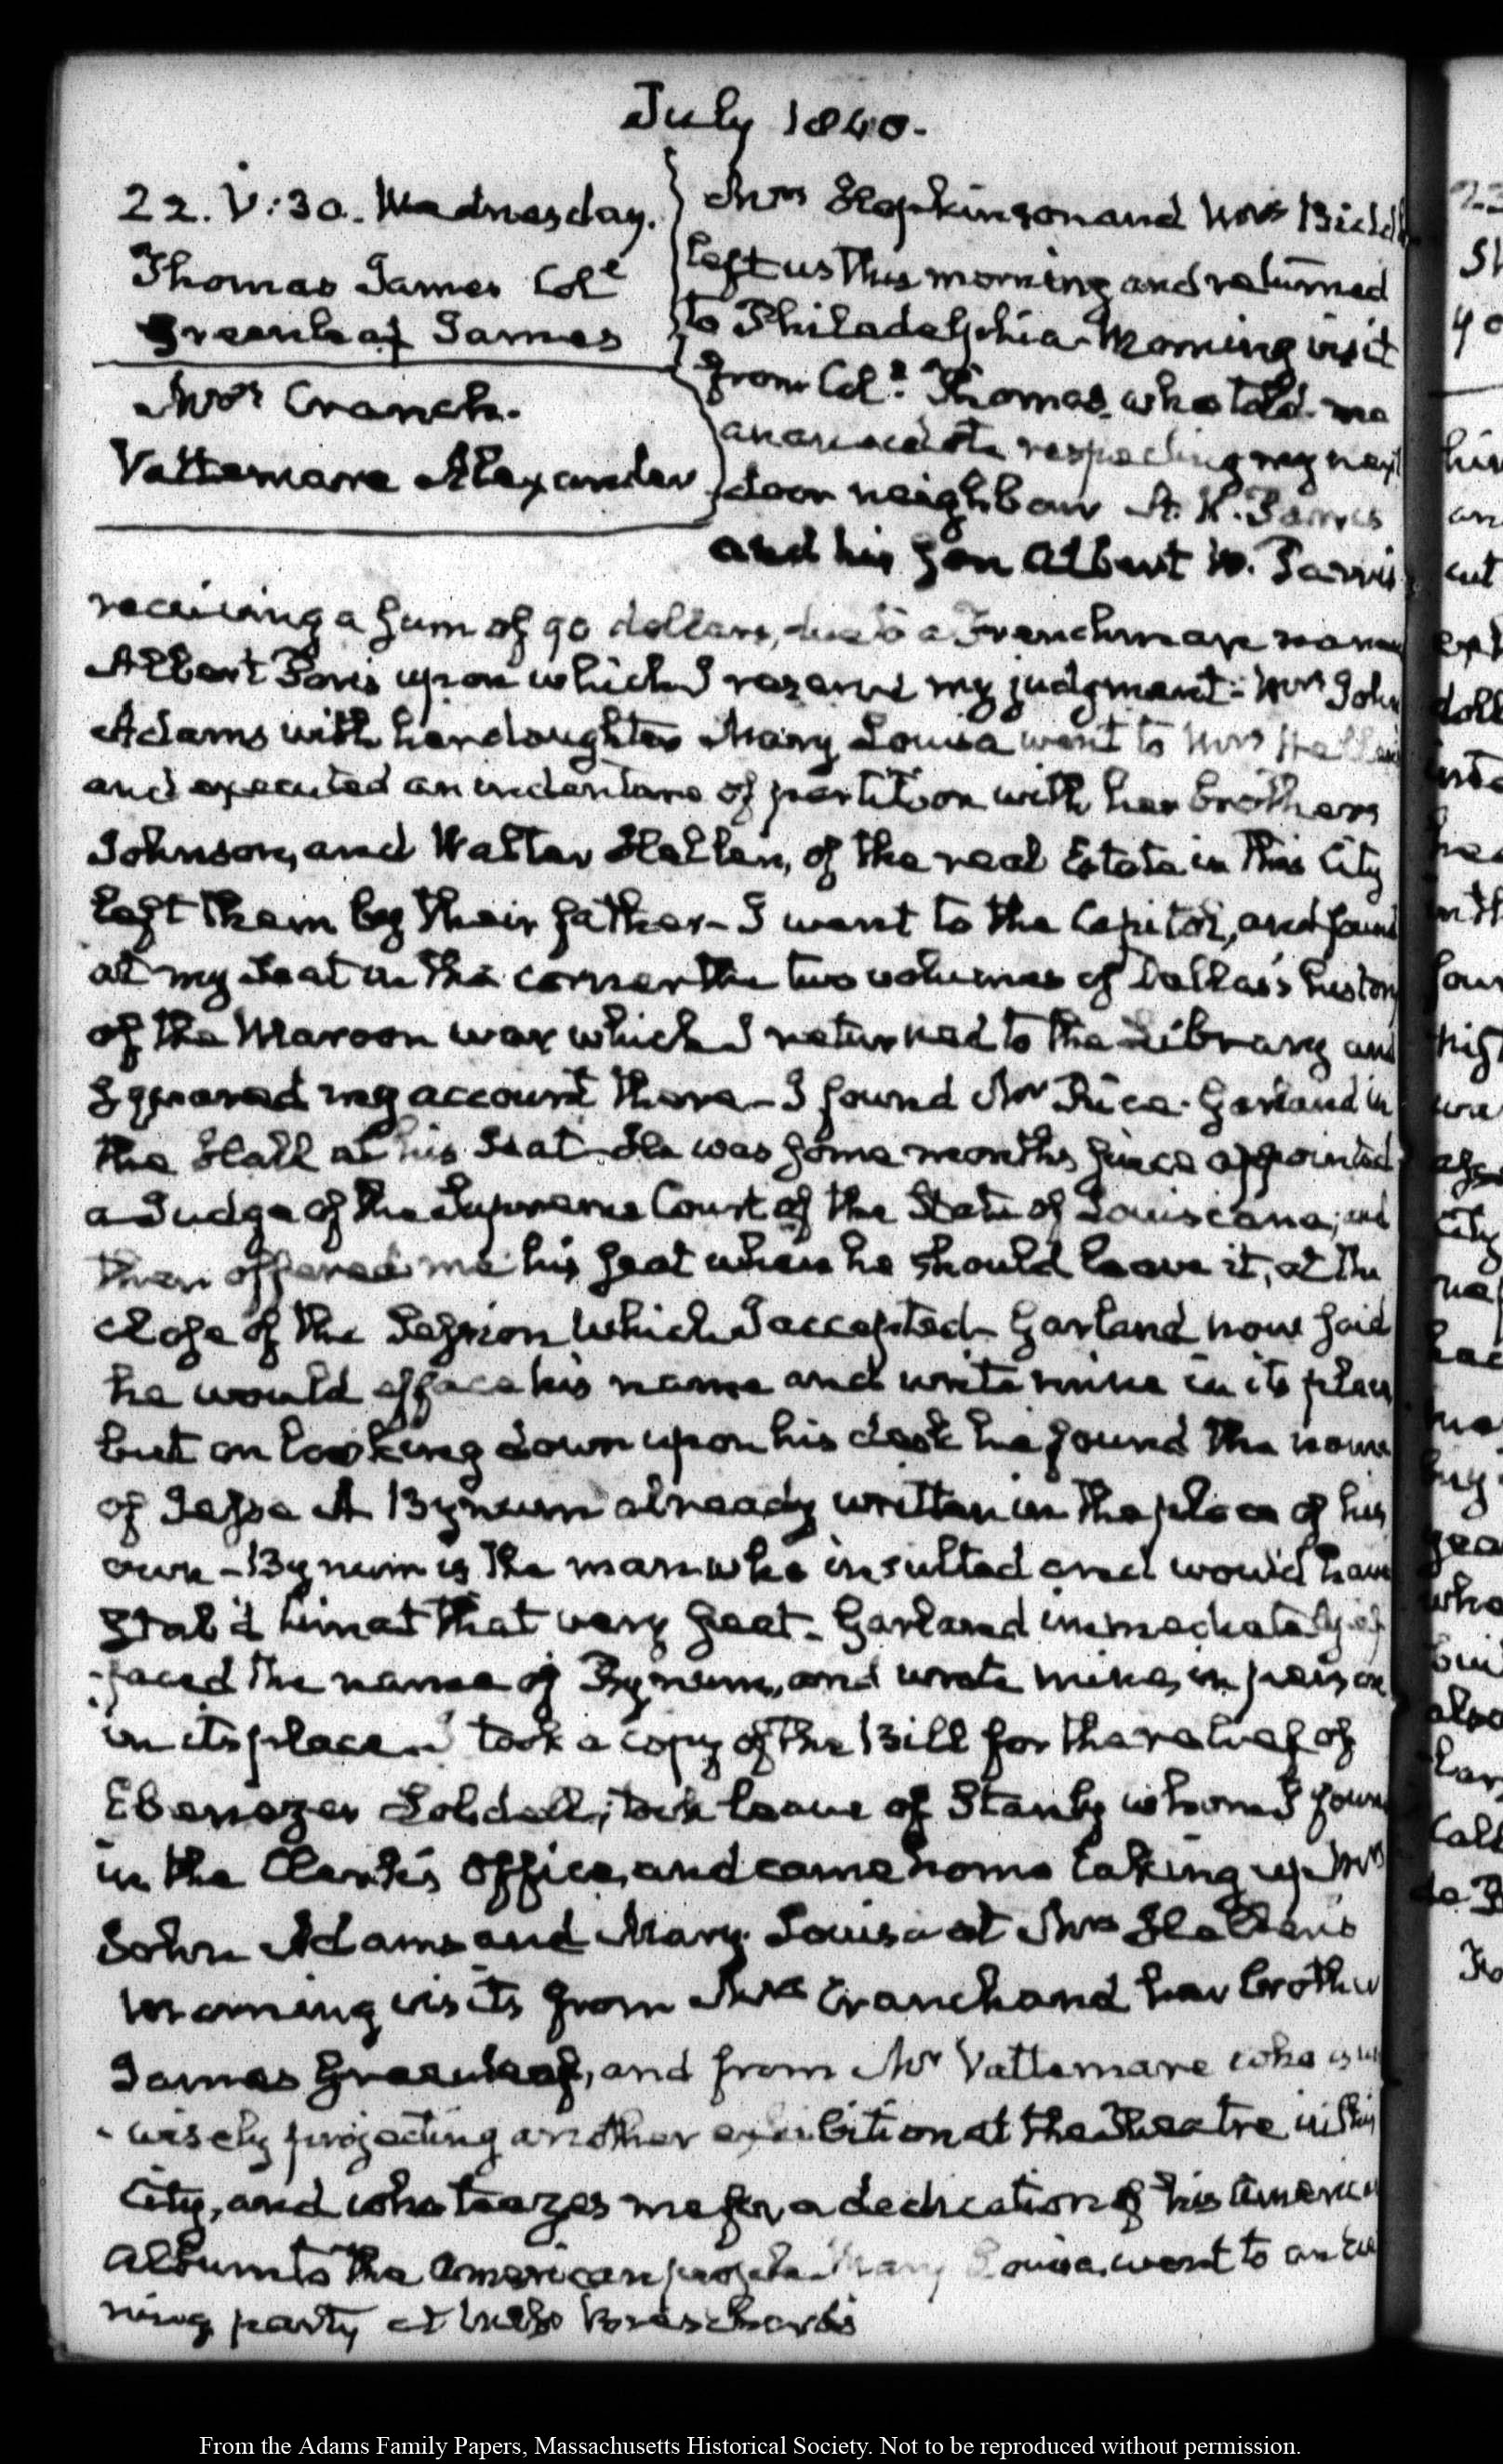 July 1840.
22. V:30. Wednesday.
Thomas James Col.e
Greenleaf James
Mrs Cranch.
Vattemare Alexander
Mrs Hopkinson and Mrs Biddle
left us this morning and returned
to Philadelphia. Morning visit
from Col.e Thomas, who told me
an anecdote respecting my next
door neighbour
and his Son Albert
receiving a sum of 90 dollars, due to a Frenchman
Albert upon which I reserve my judgment. Mrs John
Adams with her daughter Mary Louisa went to Mrs Hellen's
and executed an indenture of partition with her brothers
Johnson, and Walter Hellen, of the real Estate in this City
left them by their father. I went to the Capitol, and found
at my Seat in the corner the two volumes of Dallas's history
of the Maroon war which I returned to the Library and
squared my account there. I found Mr Rice Garland in
the Hall at his Seat. He was some months since appointed
a Judge of the Supreme Court of the State of Louisiana; and
then offered me his seat when he should leave it, at the
close of the Session which I accepted. Garland now said
he would efface his name and write mine in its place
but on looking down upon his desk he found the name
of Jesse A Bynum already written in the place of his
own. Bynum is the man who insulted and would have
stab'd him at that very seat. Garland immediately ef
-faced the name of Bynum, and wrote mine, in
in its place. I took a copy of the Bill for the relief of
Ebenezer Lobdell; took leave of Stanly whom I found
in the Clerk's Office, and came home taking up Mrs
John Adams and Mary Louisa at Mrs Hellen's
Morning visits from Mrs Cranch and her brother
James Greenleaf, and from Mr Vattemare who is un
-wisely projecting another exhibition at the Theatre in this
City, and who teazes me for a dedication of his American
Album to the American people. Mary Louisa, went to an eve
ning party at
From the Adams Family Papers, Massachusetts Historical Society. Not to be reproduced without permission.